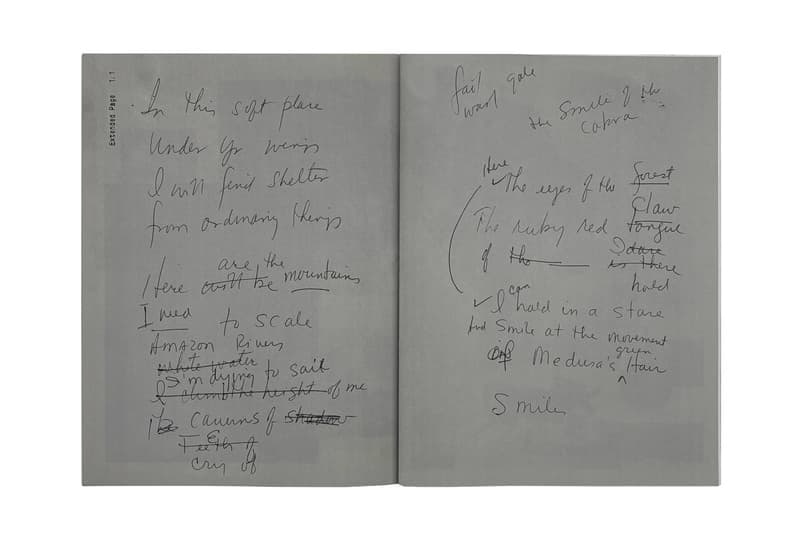 Extended Page 1.1
In this soft place
Under Yr wings
I will find shelter
from ordinary things
are the
Here will be mountains
I need to scale
Amazon Rivers
white water
I'm dying to sail
I climb the height of me
Caverns of shadow
Teeth of
cry of
fail
want gale
the Smile of the
Cobra
Here
The eyes of the forest
Claw
The ruby red tongue
of the I dare
is there
hold
can
I hold in a stare
And Smile at the movement
green
of Medusa's Hair
Smile